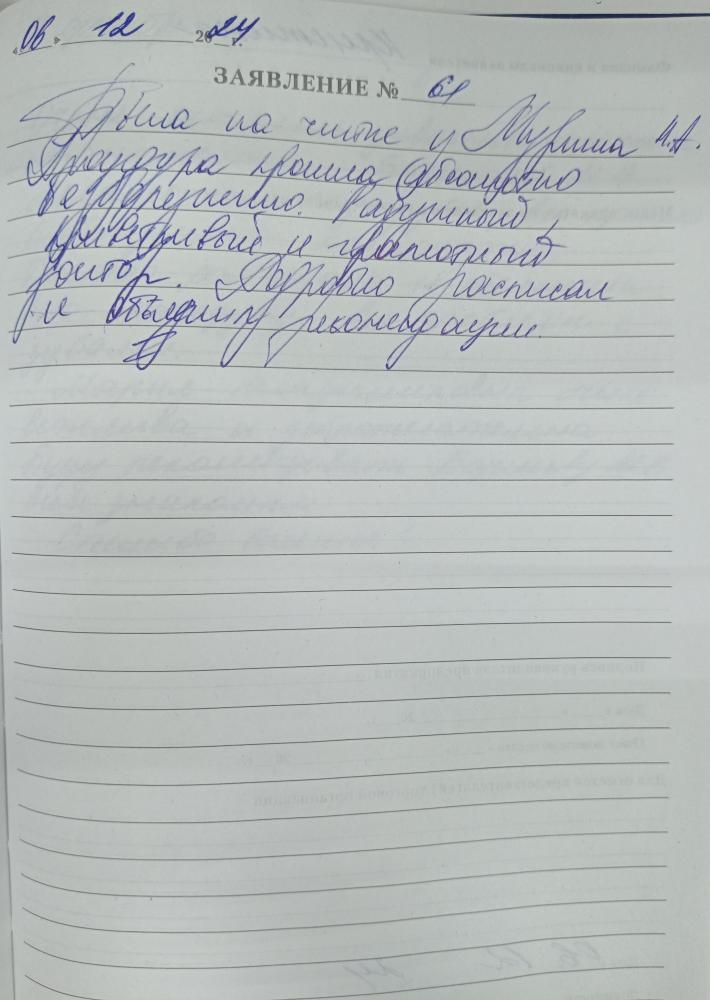 «06» 12 2024 г.
ЗАЯВЛЕНИЕ № 61
Была на чистке у Мурина И.А.
Процедура прошла абсолютно
безболезненно. Радушный,
приветливый и грамотный
доктор. Подробно расписал
и объяснил рекомендации.